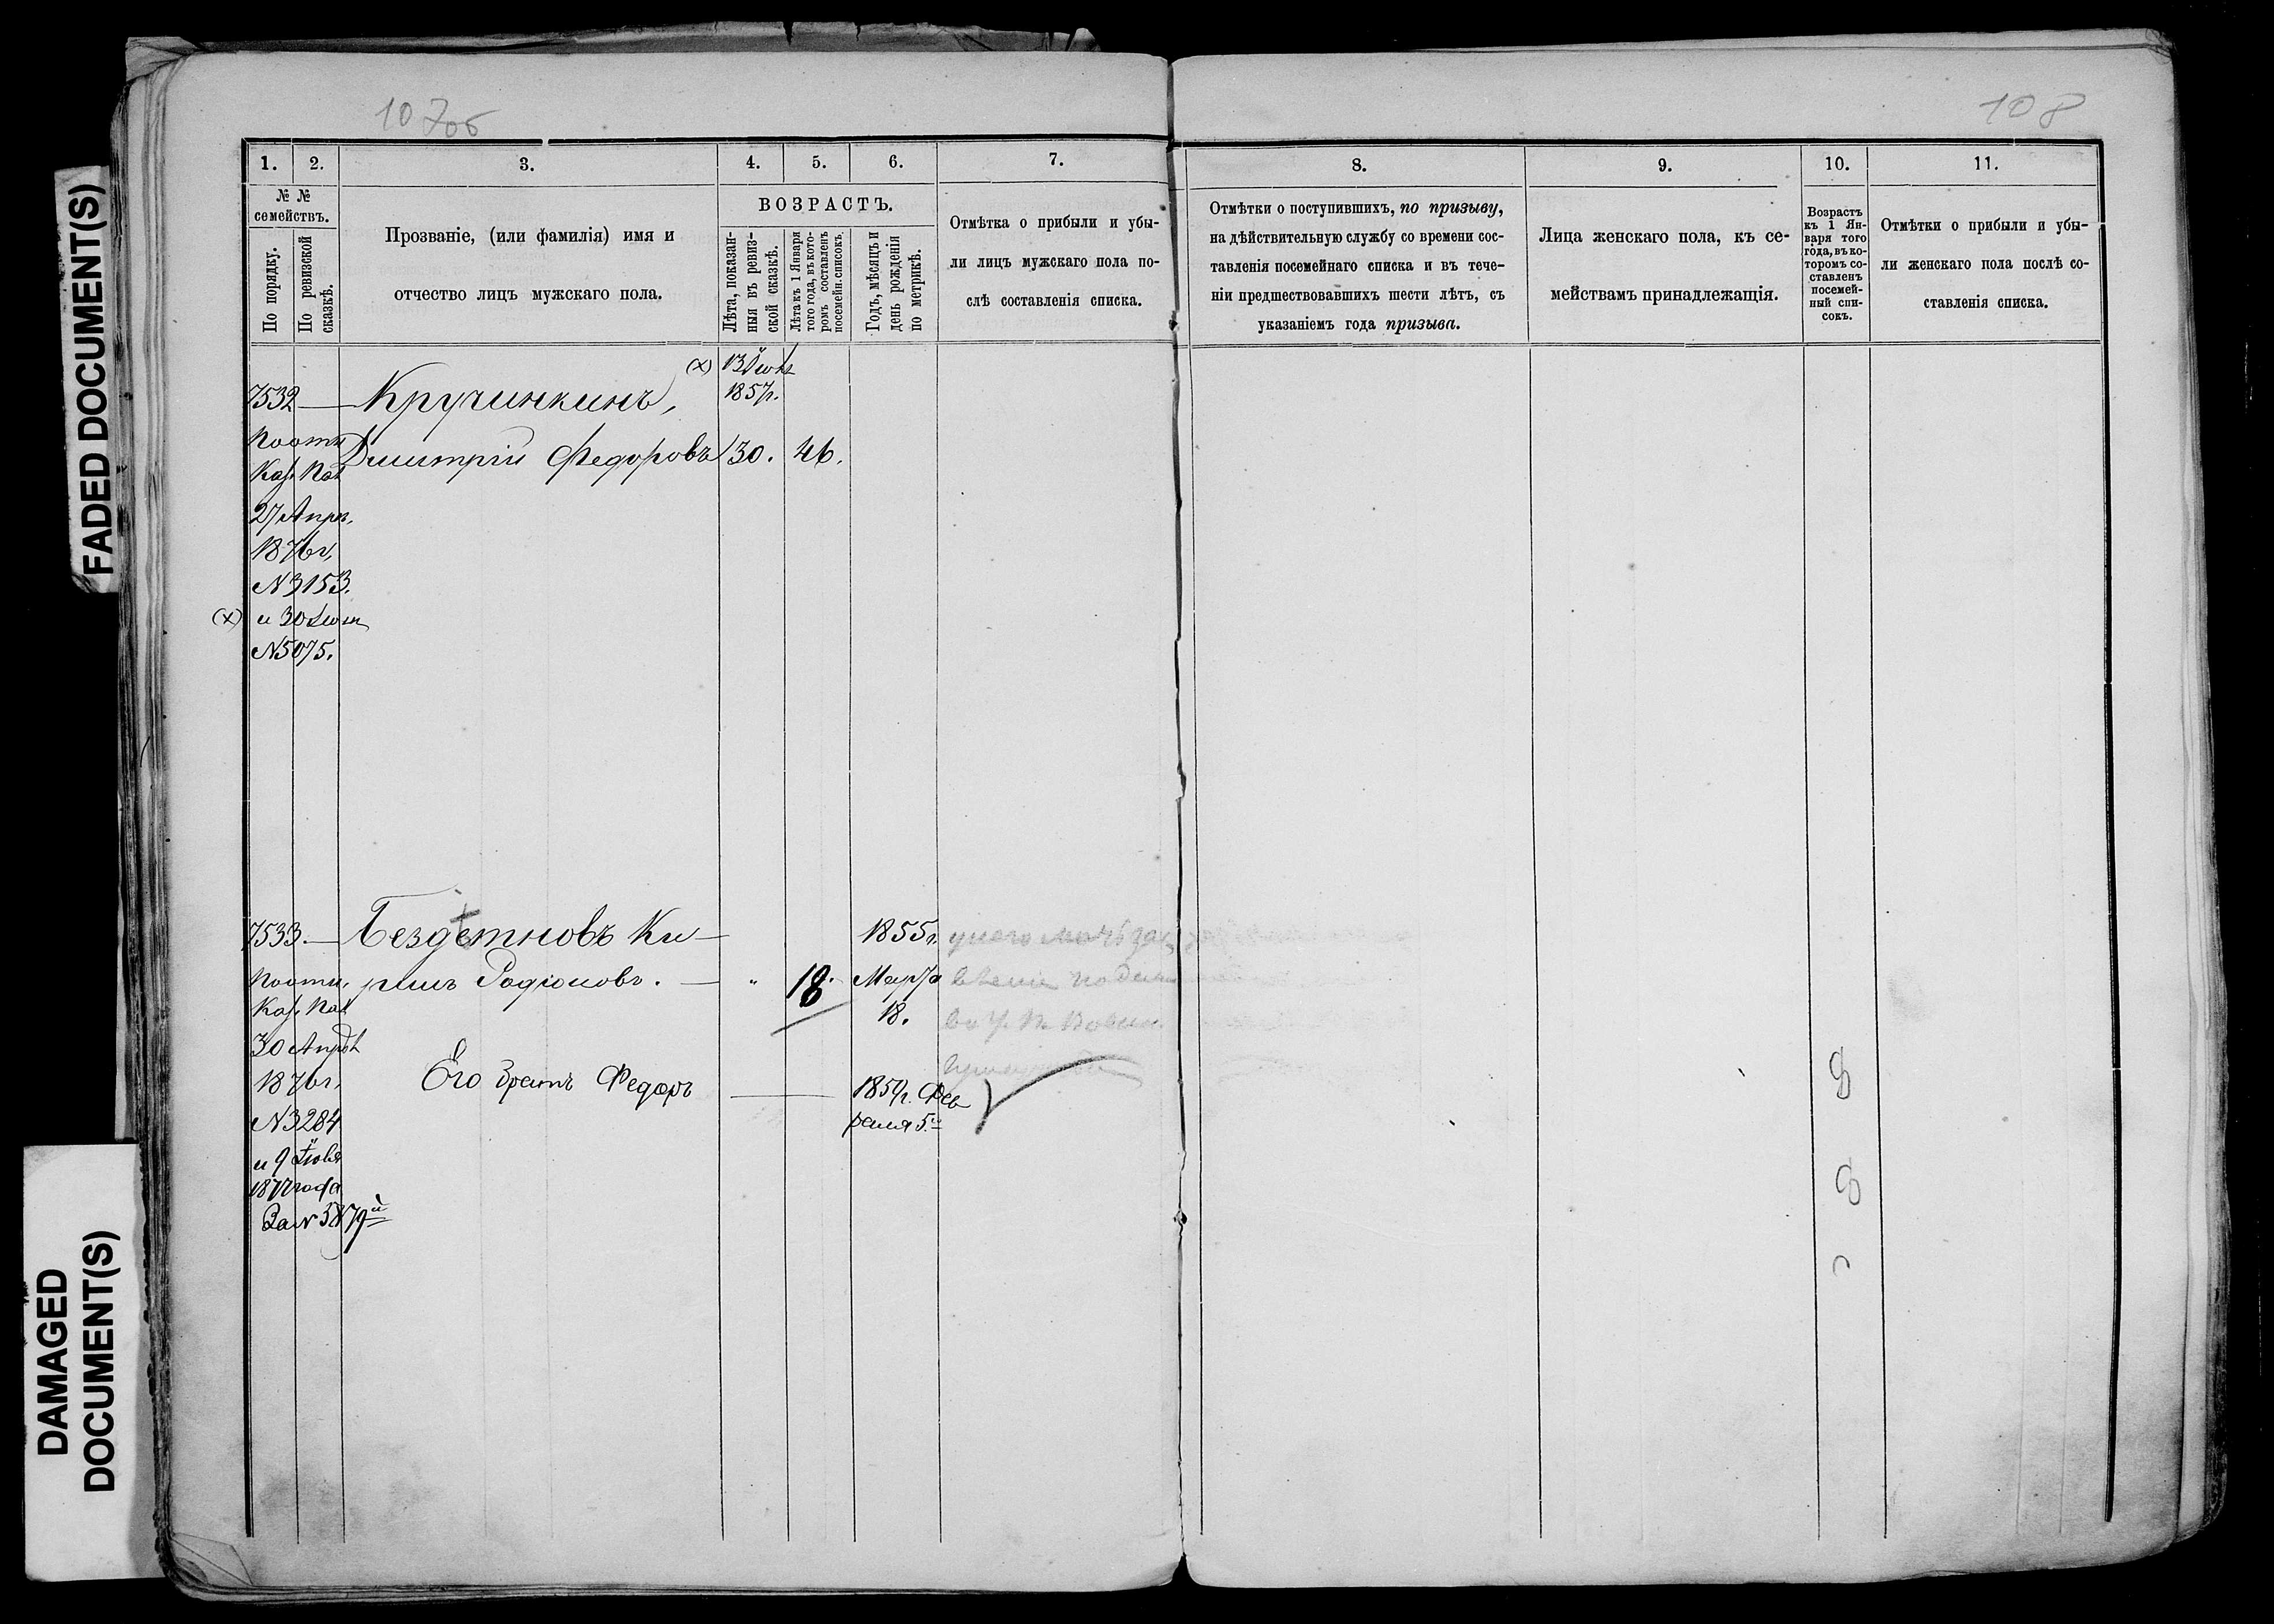 FADED DOCUMENT(S)
DAMAGED
DOCUMENT(S)
107об
108
1. 2. 3. 4. 5. 6. 7. 8. 9. 10. 11.
№ №
семействъ.
По порядку.
По ревизской
сказкѣ.
Прозваніе, (или фамилія) имя и
отчество лицъ мужскаго пола.
ВОЗРАСТЪ.
Лѣта, показан-
ныя въ ревиз-
ской сказкѣ.
Лѣта къ 1 Января
того года, въ кото-
ромъ составленъ
посемейн. списокъ.
Годъ, мѣсяцъ и
день рожденія
по метрикѣ.
Отмѣтка о прибыли и убы-
ли лицъ мужскаго пола по-
слѣ составленія списка.
Отмѣтки о поступившихъ, по призыву,
на дѣйствительную службу со времени сос-
тавленія посемейнаго списка и въ тече-
ніи предшествовавшихъ шести лѣтъ, съ
указаніемъ года призыва.
Лица женскаго пола, къ се-
мействамъ принадлежащія.
Возрастъ
къ 1 Ян-
варя того
года, въ ко-
торомъ со-
ставленъ
посемей-
ный спи-
сокъ.
Отмѣтки о прибыли и убы-
ли женскаго пола послѣ со-
ставленія списка.
(х) 13
1857г.
7532 — Кручинкинъ,
Димитрій Федоровъ 30. 46.
Каз. Пал
27 Апрѣ.
1876г.
N3153.
(х) и 30
N5075.
7533. — Бездѣтновъ Ки- 1855г.
рилъ Родіоновъ. — " 18. Марта
Каз. Пал 18.
30 Апрѣл
1876г. Его братъ Федоръ — 1859г. Фев
N3284 раля 5.
и 9
1877 года
За N 5879й